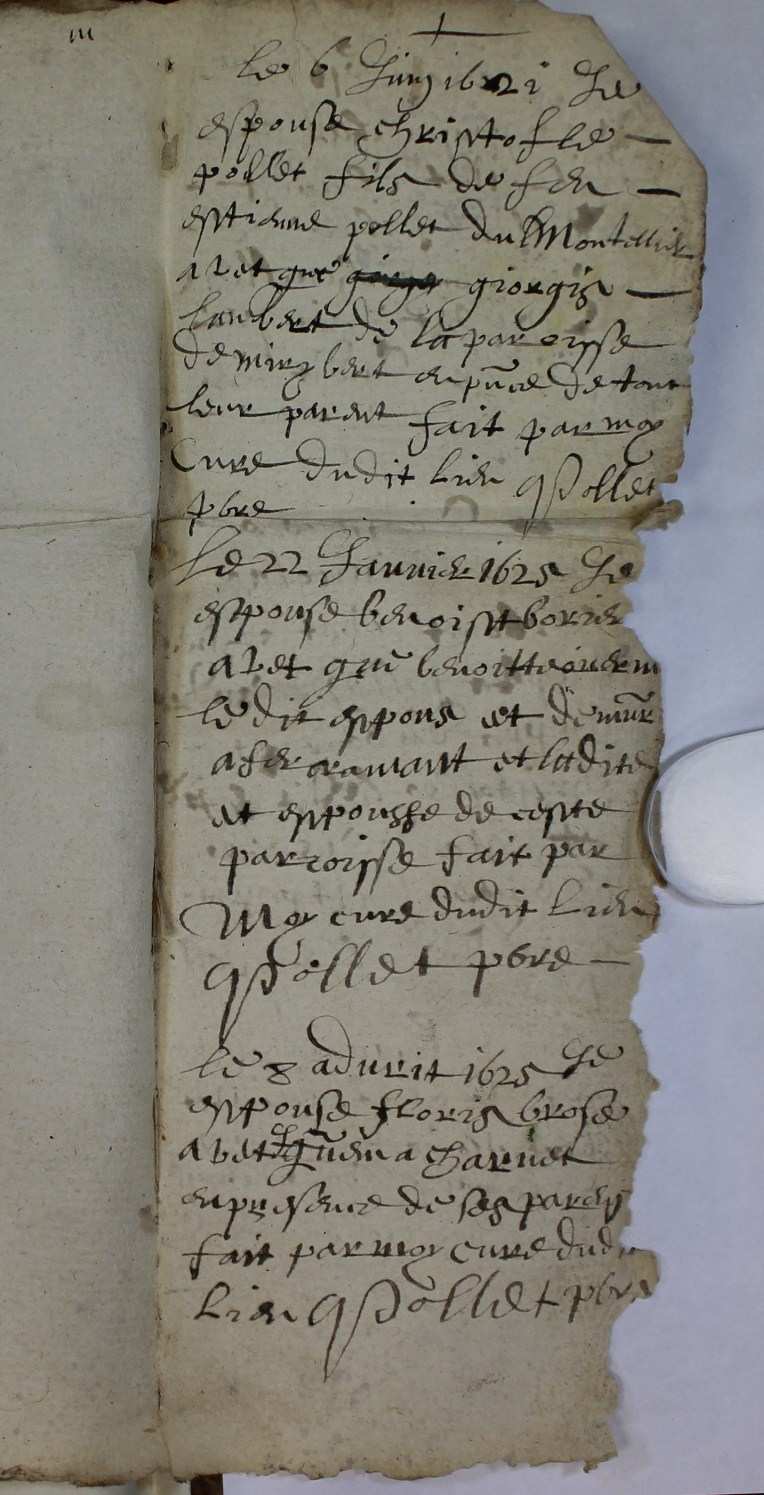 le 6 Juing 1621 Je
espouse christofle
pollet filz de feu
esttienne pollet du Montellier
avet que giorgis
lanbert de la paroisse
de miribert en pnce de tout
leur parent fait par moy
Cure dudit lieu Pollet
pbre
le 22 Januier 1625 Je
esttpouse benoistt borier
avet que benoitte
le dit esttpous et
a et ladite
et esttpousse de cestte
parroisse fait par
Moy cure dudit lieu
Pollet pbre
le 8 adurit 1625 Je
esttpouse floris brose
avet charuet
en presence de ses parens
fait par moy cure dudit
lieu Pollet pbre